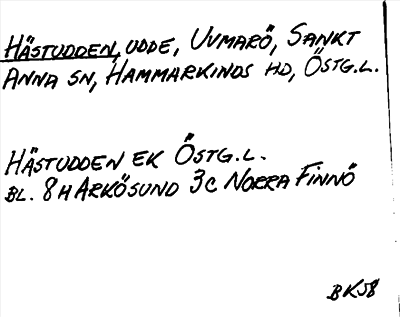 HÄSTUDDEN, UDDE, UVMARÖ, SANKT
ANNA SN, HAMMARKINDS HD, ÖSTG.L.
HÄSTUDDEN EK ÖSTG.L.
BL. 8H ARKÖSUND 3C NORRA FINNÖ
BK58